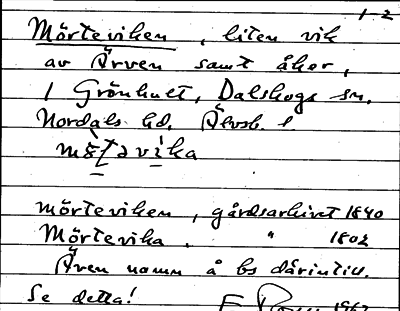 1-2
Mörteviken, liten vik
av Ärven samt åker,
/ Grönhult, Dalskogs sn,
Nordals hd. Älvsb. l.
mö̀ʈavika
Mörteviken, gårdsarkivet 1840
Mörtevika, " 1802
Även namn å bs därintill.
Se detta!